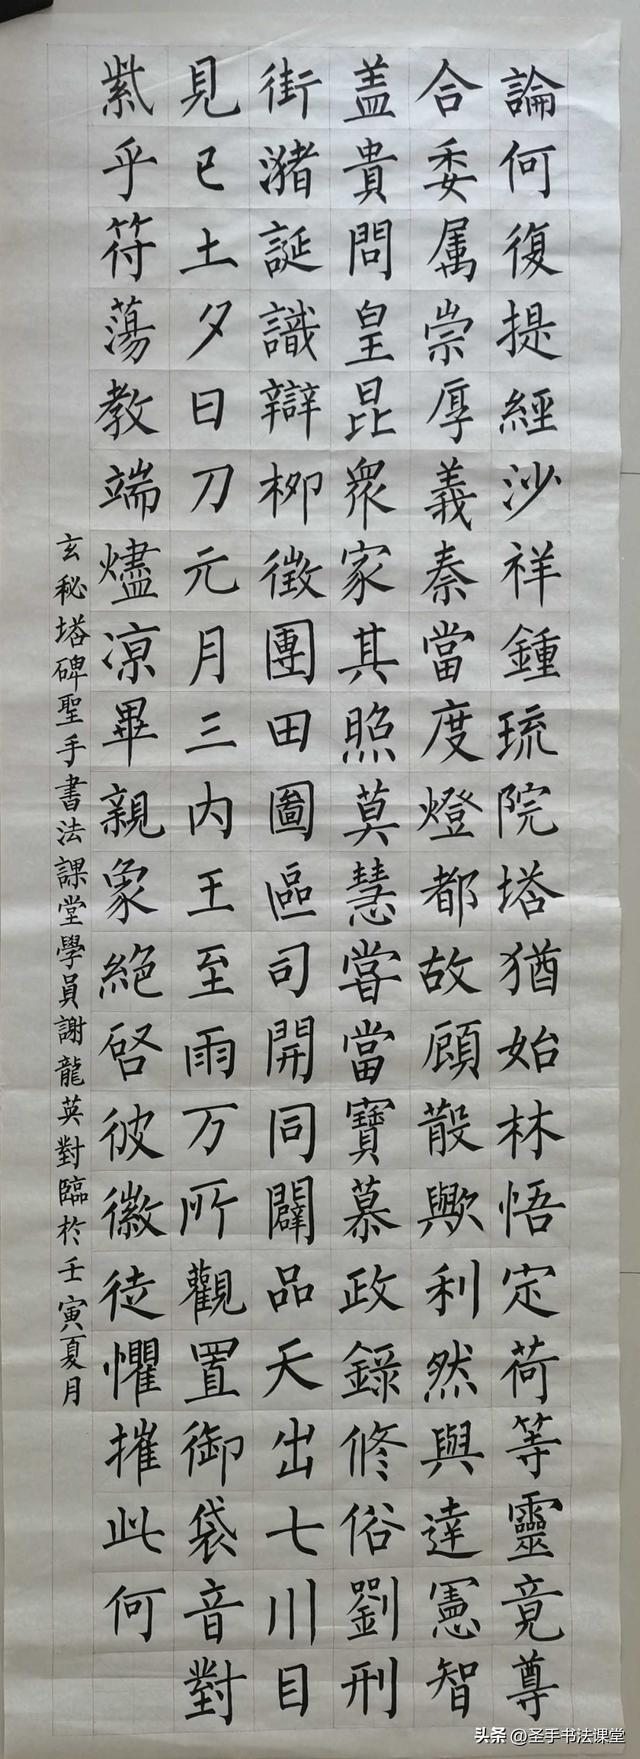 論何復提經沙祥鍾琉院塔猶始林悟定荷等靈竟尊
合委属崇厚義秦當度燈都故顧散歟利然與達憲智
盖貴問皇昆衆家其照莫慧嘗當寶慕政錄修俗劉刑
街潴誕識辯柳徴團田圖區司開同闢品天出七川目
見已土夕日刀元月三内王至雨万所觀置御袋音對
紫乎符蕩教端燼凉畢親象絶啓彼徽徒懼摧此何
玄秘塔碑聖手書法課堂學員謝龍英對臨於壬寅夏月
头条 @圣手书法课堂